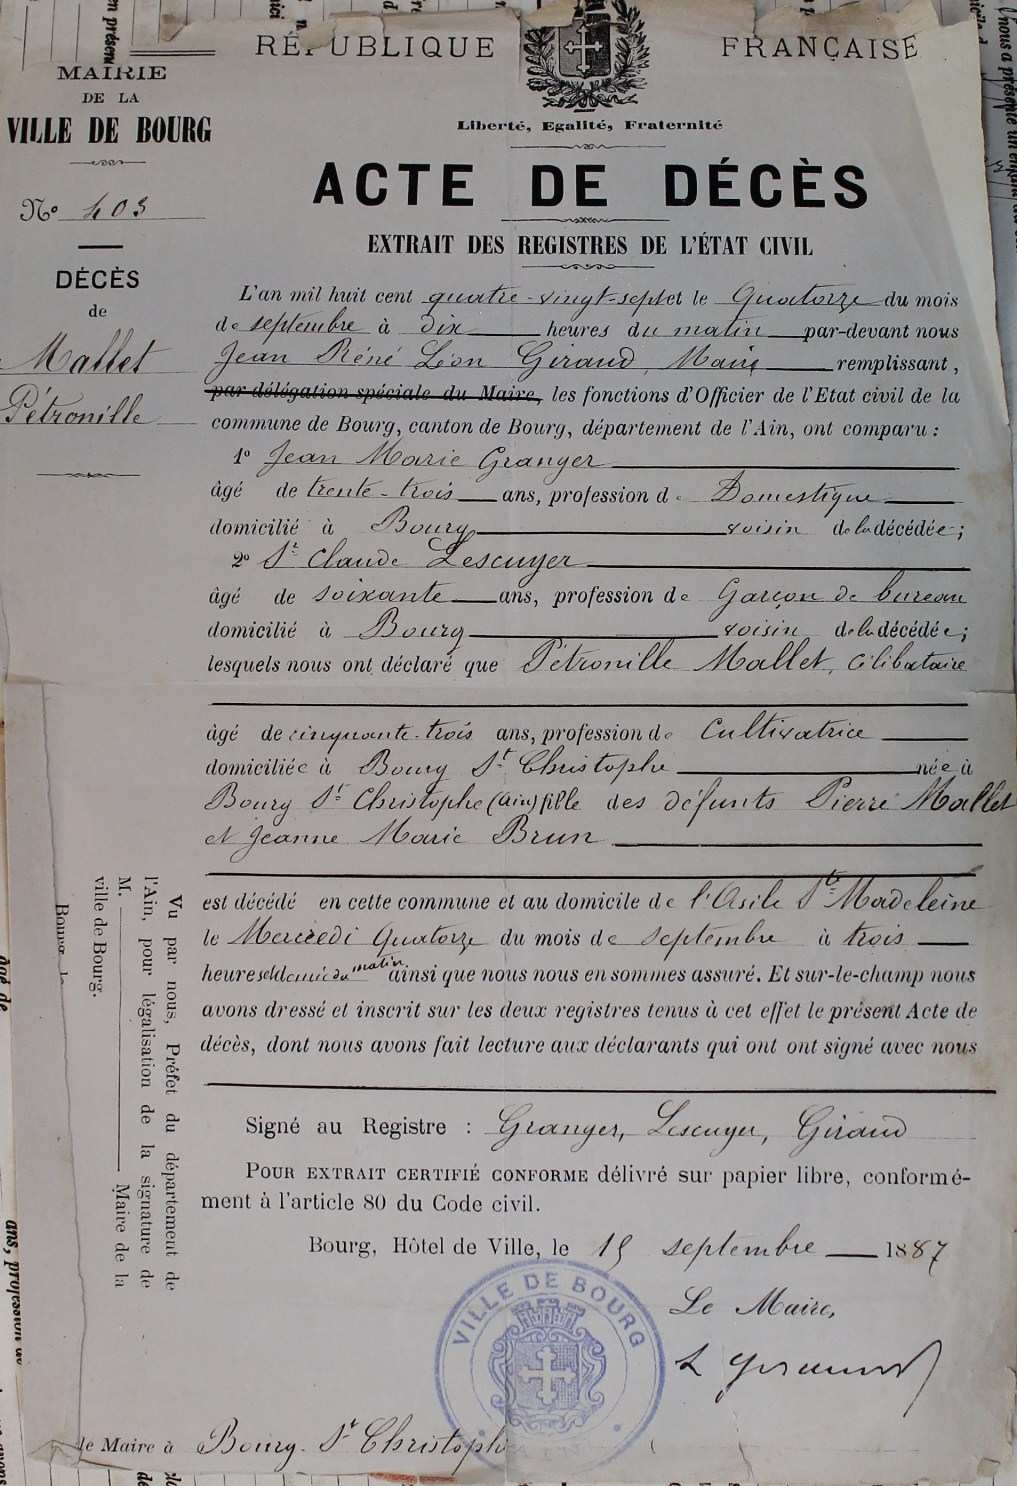 RÉPUBLIQUE FRANÇAISE
MAIRIE
DE LA
VILLE DE BOURG
Liberté, Egalité, Fraternité
ACTE DE DÉCÈS
Nº 403
EXTRAIT DES REGISTRES DE L'ÉTAT CIVIL
DÉCÈS
de
Mallet
Pétronille
L'an mil huit cent quatre-vingt-sept et le Quatorze du mois
de septembre à dix heures du matin par-devant nous
Jean Réné Léon Giraud, Maire remplissant,
par délégation spéciale du Maire, les fonctions d'Officier de l'Etat civil de la
commune de Bourg, canton de Bourg, département de l'Ain, ont comparu :
1º Jean Marie Granger
âgé de trente-trois ans, profession de Domestique
domicilié à Bourg voisin de la décédée;
2º St Claude Lescuyer
âgé de soixante ans, profession de Garçon de bureau
domicilié à Bourg voisin de la décédée;
lesquels nous ont déclaré que Pétronille Mallet, célibataire
âgé de cinquante-trois ans, profession de Cultivatrice
domiciliée à Bourg St Christophe née à
Bourg St Christophe (Ain) fille des défunts Pierre Mallet
et Jeanne Marie Brun
est décédé en cette commune et au domicile de l'Asile Ste Madeleine
le Mercredi Quatorze du mois de septembre à trois
heures et demie du matin ainsi que nous nous en sommes assuré. Et sur-le-champ nous
avons dressé et inscrit sur les deux registres tenus à cet effet le présent Acte de
décès, dont nous avons fait lecture aux déclarants qui ont ont signé avec nous
Signé au Registre : Granger, Lescuyer, Giraud
POUR EXTRAIT CERTIFIÉ CONFORME délivré sur papier libre, conformé-
ment à l'article 80 du Code civil.
Bourg, Hôtel de Ville, le 15 septembre 1887
Le Maire,
L Giraud
VILLE DE BOURG
le Maire à Bourg-St Christophe
Vu par nous, Préfet du département de
l'Ain, pour légalisation de la signature de
M. Maire de la
ville de Bourg.
Bourg, le